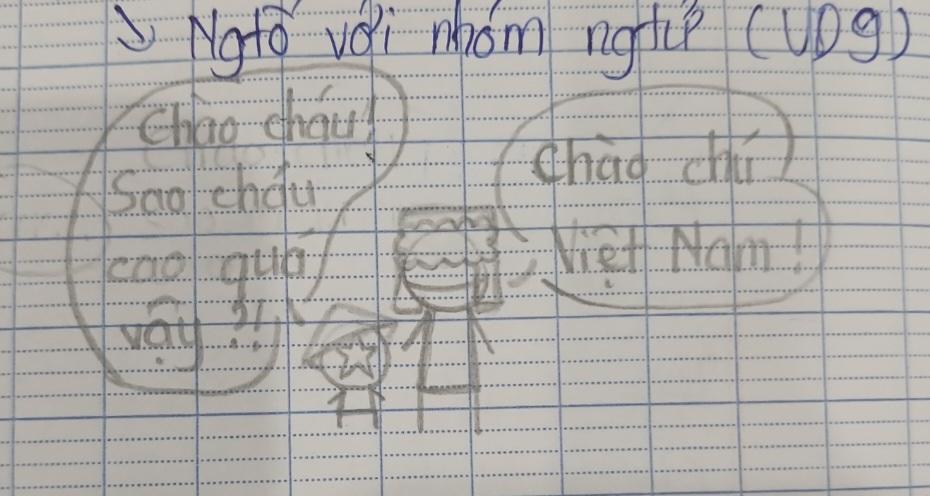 Ngtố với nhóm ngtử (VD9)
Chào cháu!
Sao cháu
cao quá
vậy?!
Chào chú
Việt Nam!